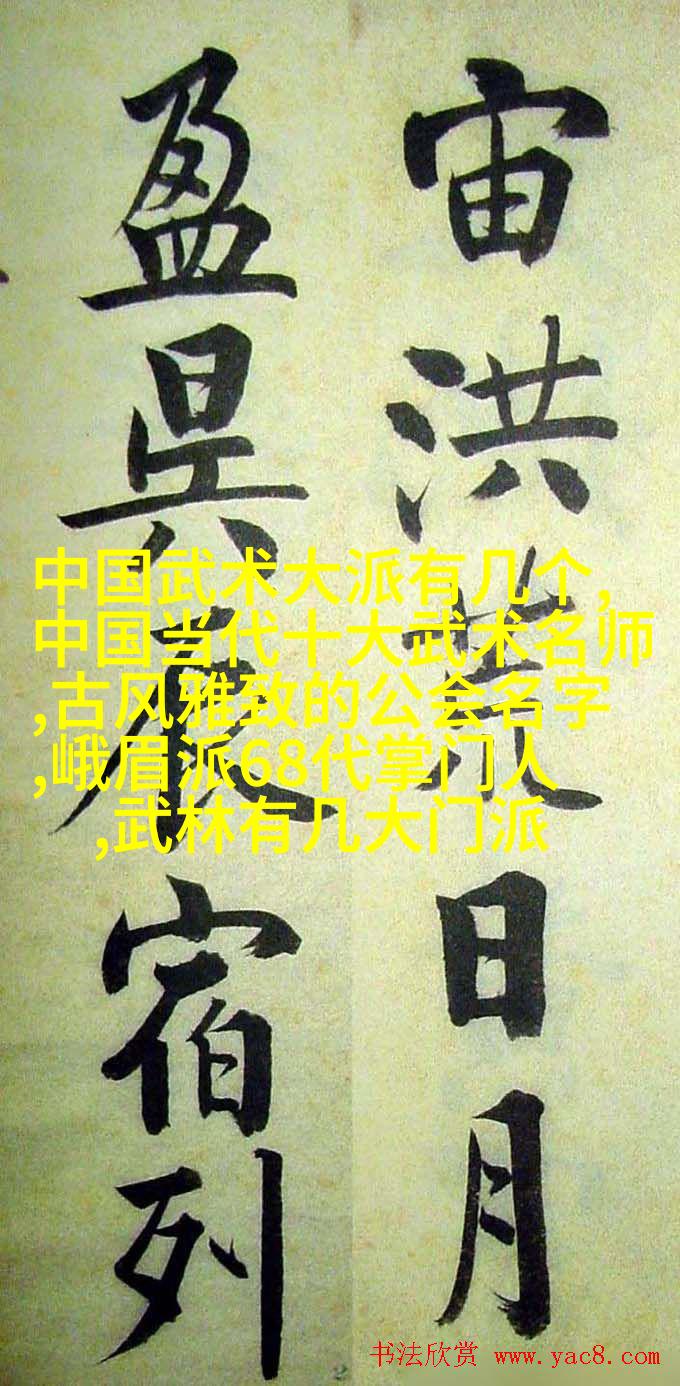 宙洪荒日月
盈昃辰宿列
中国武术大派有几个,
中国当代十大武术名师
,古风雅致的公会名字
,峨眉派68代掌门人
,武林有几大门派
书法欣赏 www.yac8.com